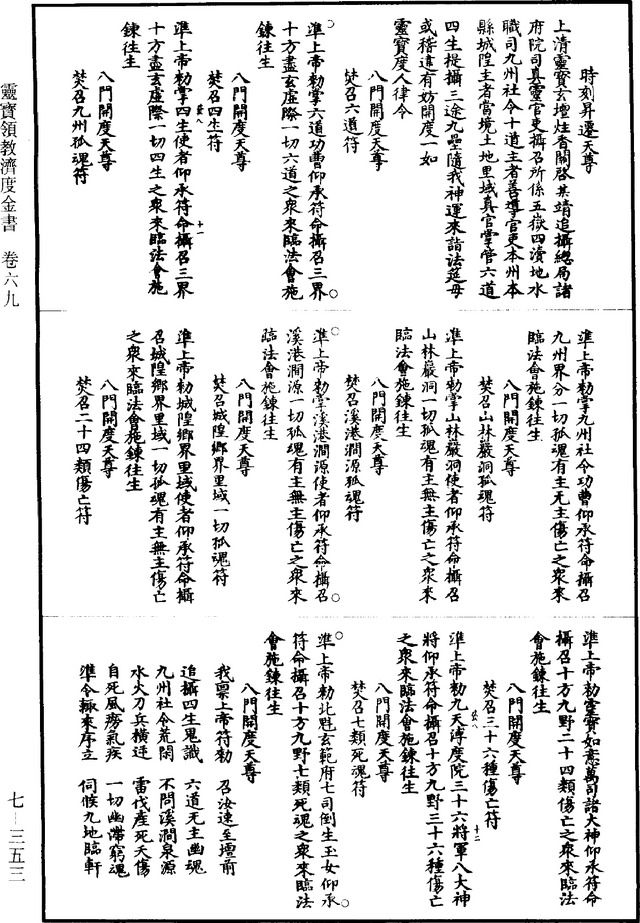 時刻昇遷天尊
上清靈寶玄壇炷香關啓某靖追攝總局諸
府院司真靈官吏攝召所係五嶽四瀆地水
職司九州社令十道主者善導官吏本州本
縣城隍主者當境土地里域真官掌管六道
四生捉攝三途九壘隨我神運來詣法筵毋
或稽違有妨開度一如
靈寶度人律令
八門開度天尊
焚召六道符
準上帝勅掌六道功曹仰承符命攝召三界
十方盡玄虛際一切六道之衆來臨法會施
鍊往生
八門開度天尊
焚召四生符
準上帝勅掌四生使者仰承符命攝召三界
十方盡玄虛際一切四生之衆來臨法會施
鍊往生
八門開度天尊
焚召九州孤魂符
準上帝勅掌九州社令功曹仰承符命攝召
九州界分一切孤魂有主无主傷亡之衆來
臨法會施鍊往生
八門開度天尊
焚召山林巖洞孤魂符
準上帝勅掌山林巖洞使者仰承符命攝召
山林巖洞一切孤魂有主無主傷亡之衆來
臨法會施鍊往生
八門開度天尊
焚召溪港澗源孤魂符
準上帝勅掌溪港澗源使者仰承符命攝召
溪港澗源一切孤魂有主無主傷亡之衆來
臨法會施鍊往生
八門開度天尊
焚召城隍鄉界里域一切孤魂符
準上帝勅城隍鄉界里域使者仰承符命攝
召城隍鄉界里域一切孤魂有主無主傷亡
之衆來臨法會施鍊往生
八門開度天尊
焚召二十四類傷亡符
準上帝勅靈寶如意萬司諸大神仰承符命
攝召十方九野二十四類傷亡之衆來臨法
會施鍊往生
八門開度天尊
焚召三十六種傷亡符
準上帝勅九天溥度院三十六將軍八大神
將仰承符命攝召十方九野三十六種傷亡
之衆來臨法會施鍊往生
八門開度天尊
焚召七類死魂符
準上帝勅北魁玄範府七司倒生玉女仰承
符命攝召十方九野七類死魂之衆來臨法
會施鍊往生
八門開度天尊
我禀上帝符勅 召汝速至壇前
追攝四生鬼識 六道无主幽魂
九州社令荒閑 不問溪澗泉源
水火刀兵橫迕 雷伐產死夭傷
自死風癆氣疾 一切幽滯窮魂
準令輙來序立 伺候九地臨軒
靈寶領教濟度金書 卷六九
七—三五三